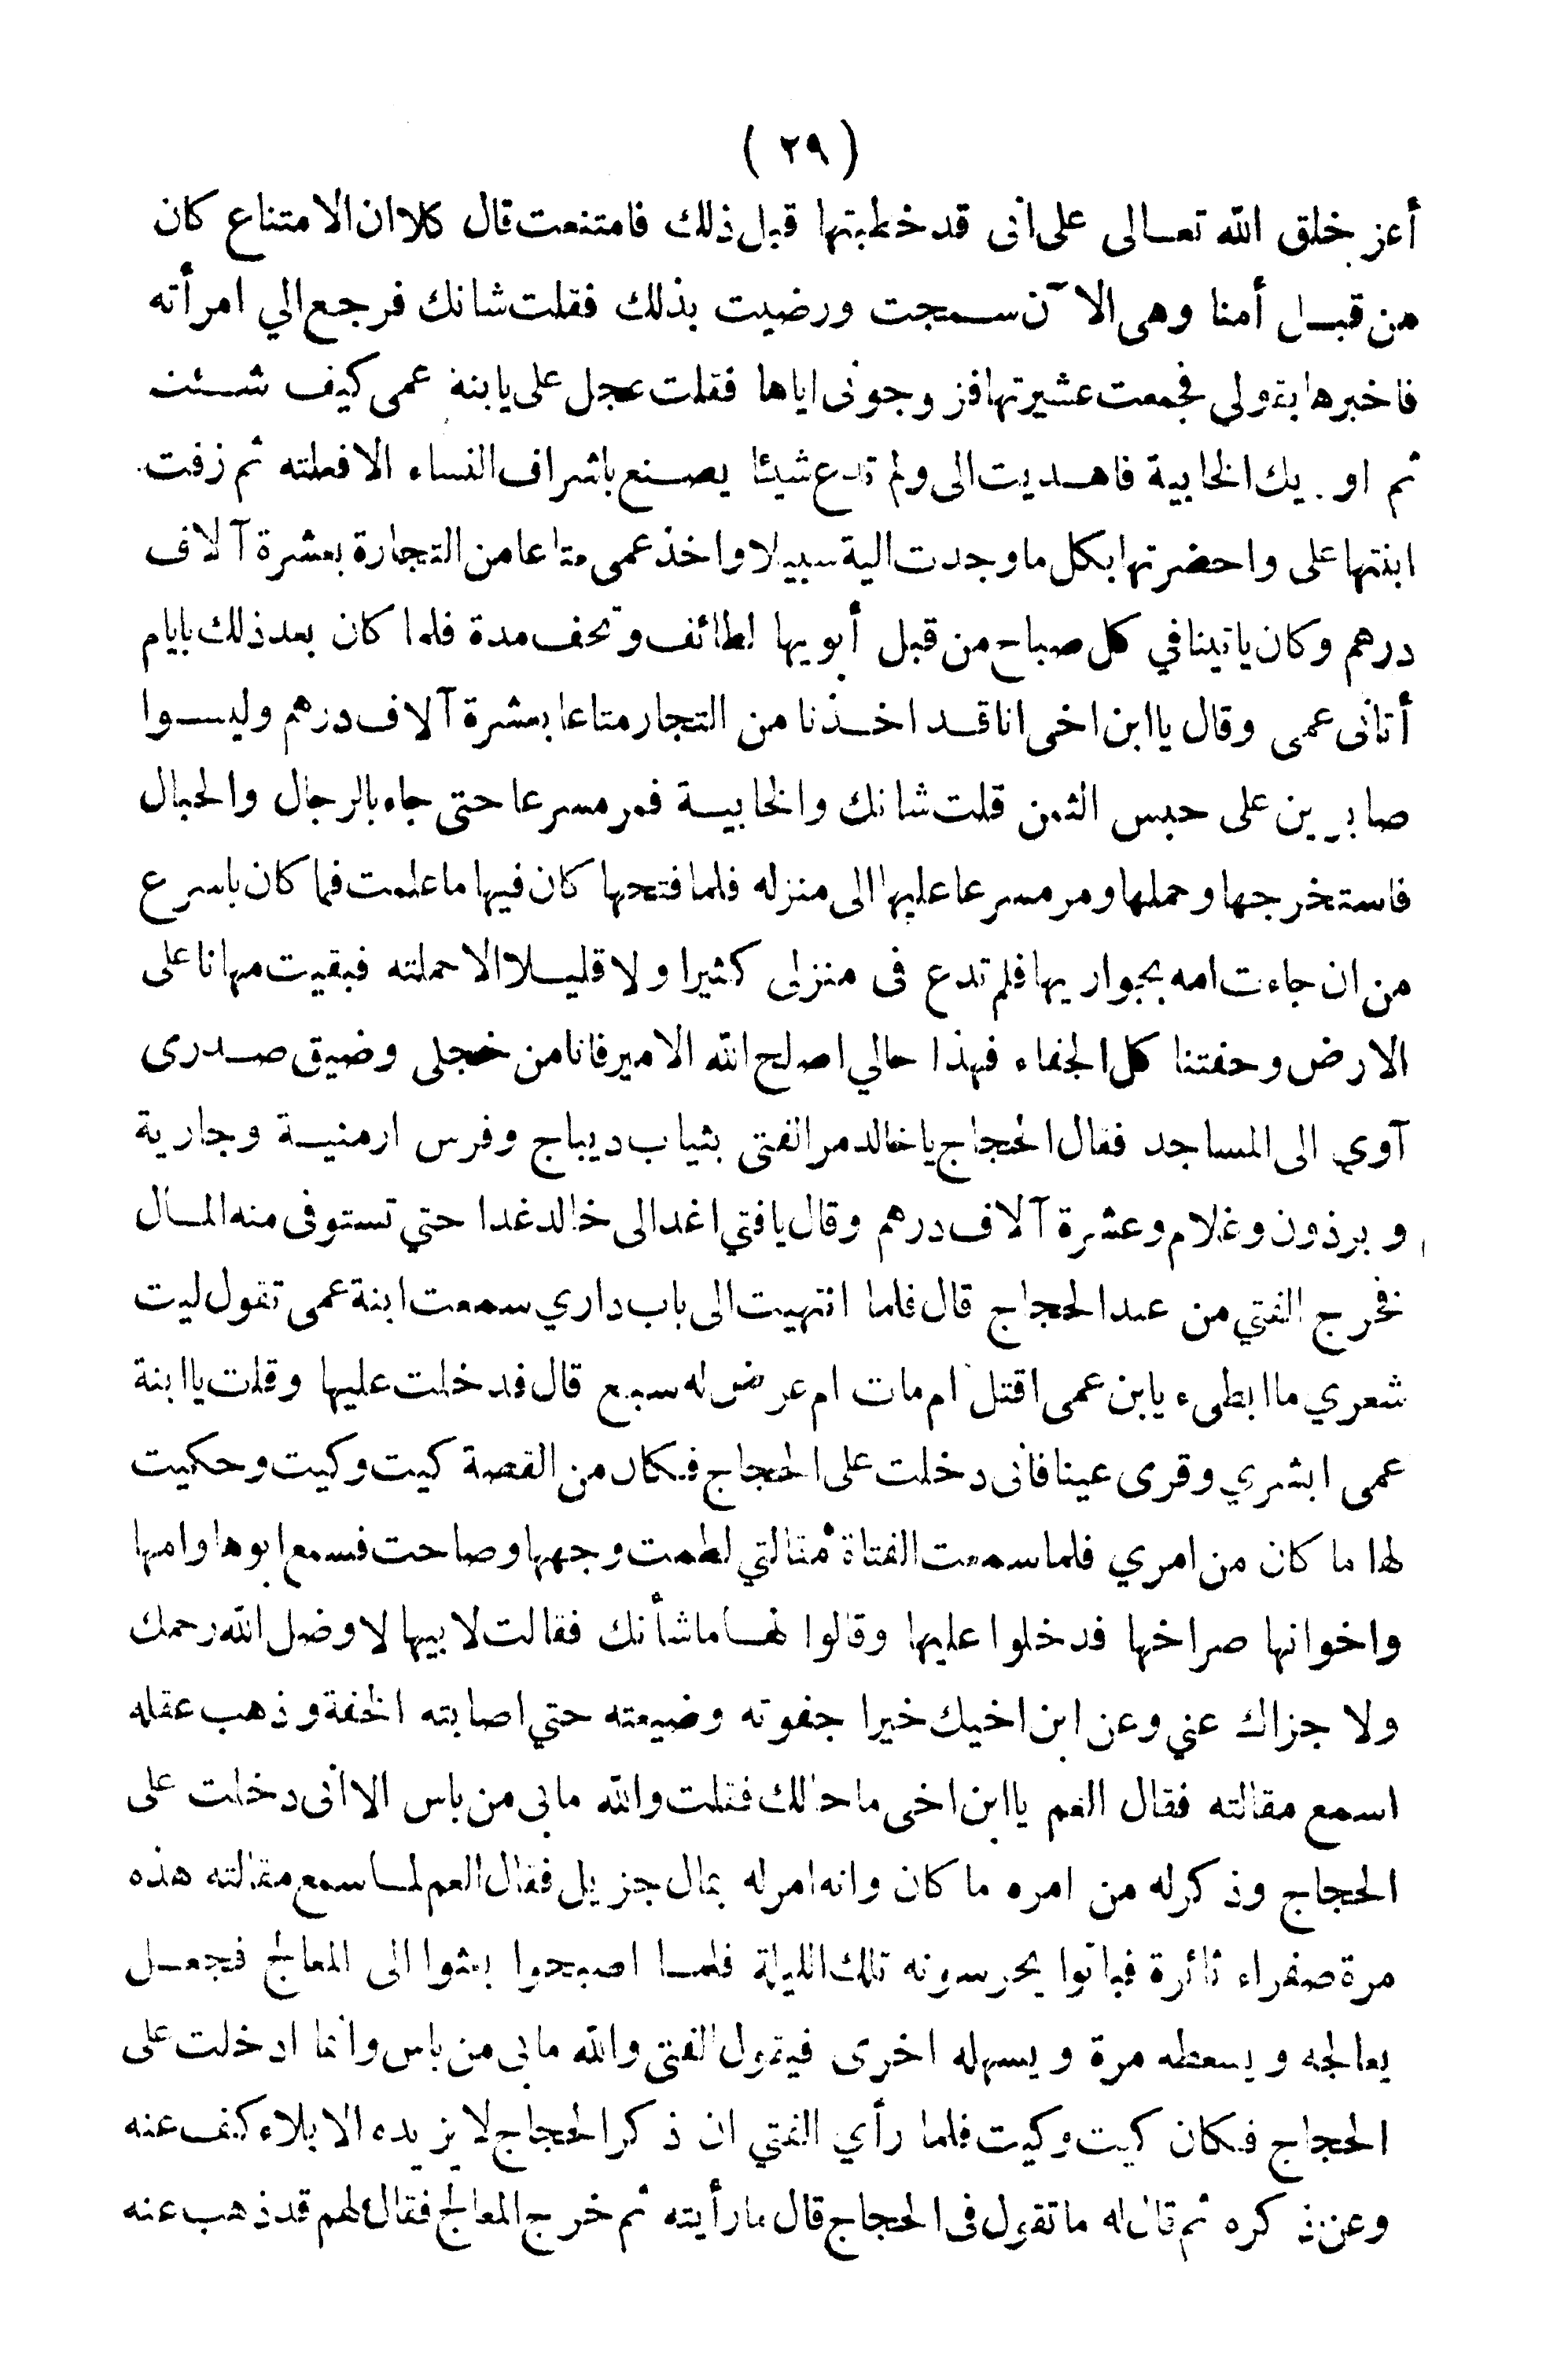 ( ٢٩ )
أعز خلق الله تعالى على أنى قد خطبتها قبل ذلك فامتنعت قال كلا ان الامتناع كان
من قبل أمنا وهى الآن سمجت ورضيت بذلك فقلت شانك فرجع الي امرأته
فاخبرها بقولي فجمعت عشيرتها فزوجونى اياها فقلت عجل على يابنة عمى كيف شئت
ثم او يك الخابية فاهديت الى ولم تدع شيئا يصنع باشراف النساء الا فعلته ثم زفت
ابنتها على واحضرتها بكل ما وجدت الية سبيلا واخذ عمى متاعا من التجارة بعشرة آلاف
درهم وكان ياتينا في كل صباح من قبل أبويها لطائف وتحف مدة فلما كان بعد ذلك بايام
أتانى عمى وقال يا ابن اخى انا قد اخذنا من التجار متاعا بعشرة آلاف درهم وليسوا
صابرين على حبس الثمن قلت شانك والخابية فمر مسرعا حتى جاء بالرجال والحبال
فاستخرجها وحملها ومر مسرعا عليها الى منزله فلما فتحها كان فيها ما علمت فما كان باسرع
من ان جاءت امه بجواريها فلم تدع فى منزلى كثيرا ولا قليلا الا حملته فبقيت مهانا على
الارض وحفتنا كل الجفاء فهذا حالي اصلح الله الامير فانا من خجلى وضيق صدرى
آوي الى المساجد فقال الحجاج يا خالد مر الفتى بثياب ديباج وفرس ارمنية وجارية
وبرذون وغلام وعشرة آلاف درهم وقال يا فتي اغد الى خالد غدا حتي تستوفى منه المال
فخرج الفتي من عند الحجاج قال فلما انتهيت الى باب داري سمعت ابنة عمى تقول ليت
شعري ما ابطىء يابن عمى اقتل ام مات ام عرض له سبع قال فدخلت عليها وقلت يا ابنة
عمى ابشري وقرى عينا فانى دخلت على الحجاج فكان من القصة كيت وكيت وحكيت
لها ما كان من امري فلما سمعت الفتاة مقالتي لطمت وجهها وصاحت فسمع ابوها وامها
واخوانها صراخها فدخلوا عليها وقالوا لها ما شأنك فقالت لابيها لا وضل الله رحمك
ولا جزاك عني وعن ابن اخيك خيرا جفوته وضيعته حتي اصابته الخفة وذهب عقله
اسمع مقالته فقال العم يا ابن اخى ما حالك فقلت والله مابى من باس الا أنى دخلت على
الحجاج وذكر له من امره ما كان وانه امر له بمال جزيل فقال العم لما سمع مقالته هذه
مرة صفراء ثائرة فباتوا يحرسونه تلك الليلة فلما اصبحوا بعثوا الى المعالج فجعل
يعالجه ويسعطه مرة ويسهله اخرى فيقول الفتى والله مابى من باس وانما ادخلت على
الحجاج فكان كيت وكيت فلما رأي الفتي ان ذكر الحجاج لا يزيده الا بلاء كف عنه
وعن ذكره ثم قال له ما تقول فى الحجاج قال ما رأيته ثم خرج المعالج فقال لهم قد ذهب عنه